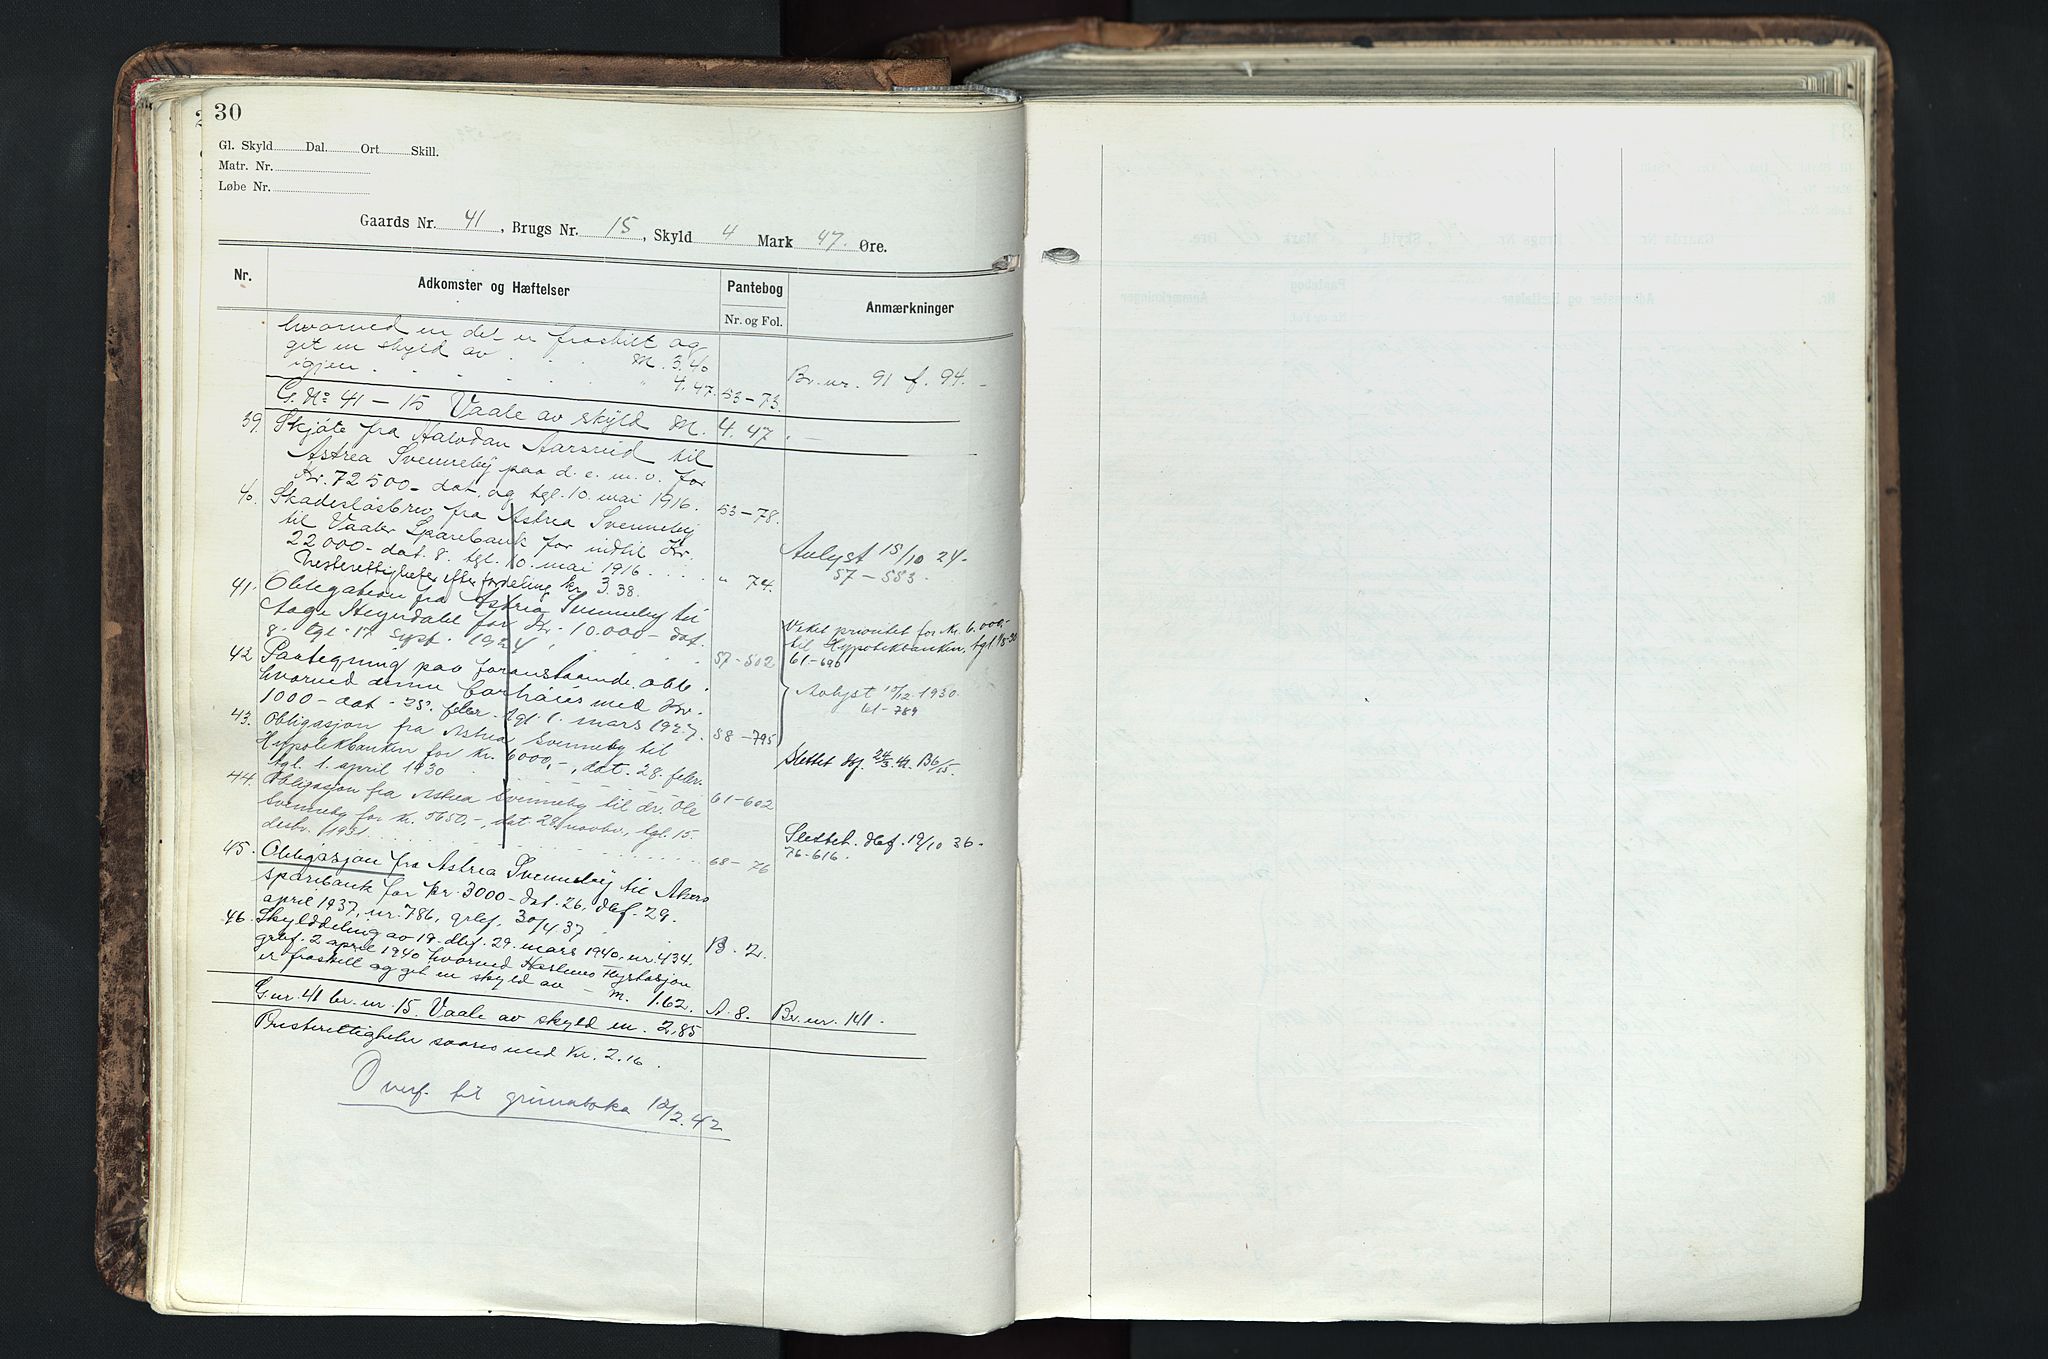 30
Gl. Skyld Dal. Ort Skill.
Matr. Nr.
Løbe Nr.
Gaards Nr. 41, Brugs Nr. 15, Skyld 4 Mark 47. Øre.
Nr. Adkomster og Hæftelser Pantebog Anmærkninger
Nr. og Fol.
hvorved en del er fraskilt og
get en skyld av . . M. 3.40 Br. nr. 91 f. 94. -
igjen . . . . . . " 4.47. 53-73.
G. No 41 - 15 Vaale av skyld M. 4.47. -
39. Skjøte fra Halvdan Aarsrud til
Astrea Svenneby paa d. e. m. v. for
Kr. 72500- dat. og tgl. 10. mai 1916. 53-78.
40. Skadesløsbrev fra Astrea Svenneby
til Vaaler Sparebank for indtil Kr.
22000- dat. 8. tgl. 10. mai 1916 . . . . " 74. Avlyst 15/10 24-
57-583.
Brusterettigheter efter fordeling kr. 3.38.
41. Obligation fra Astrea Svenneby til
Aage for Kr. 10.000- dat.
8. tgl. 17. sept. 1924 . . . . 57-502 Veket prioritet for Kr. 6.000,-
til Hypotekbanken, tgl. 1/5-30
61-696
42. Paategning paa foranstaaende obl.
hvorved denne forhøies med Kr.
1000- dat. 25. febr. tgl. 1. mars 1927. 58-795 Avlyst 15/12.1930.
61-789
43. Obligasjon fra Astrea Svenneby til
Hypotekbanken for kr. 6000,-, dat. 28. febr. Slettet dbf. 24/3. 41. B6/15.
tgl. 1. april 1930 . . . . . . 61-602
44. Obligasjon fra Astrea Svenneby til dr. Ole
Svenneby for kr. 5650,-, dat. 28. novbr., tgl. 15.
desbr. 1931. . . . . . . . . . 68-76 Slettet. dbf. 19/10 36-
76-616.
45. Obligasjon fra Astrea Svenneby til Akers
sparebank for kr. 3000- dat. 26, dbf. 29.
april 1937, nr. 786, grbf. 30/4 37. B. 2.
46. Skylddeling av 19. dbf. 29. mars 1940, nr. 434.
grbf. 2 april 1940 hvorved Haslemo Flystasjon
er fraskilt og get en skyld av - M. 1.62. A. 8. Br. nr. 141.
G. nr. 41 br. nr. 15. Vaale av skyld m. 2.85
Brusterettigheter svares med Kr. 2.16.
Overf. til grunnboka 12/2.42